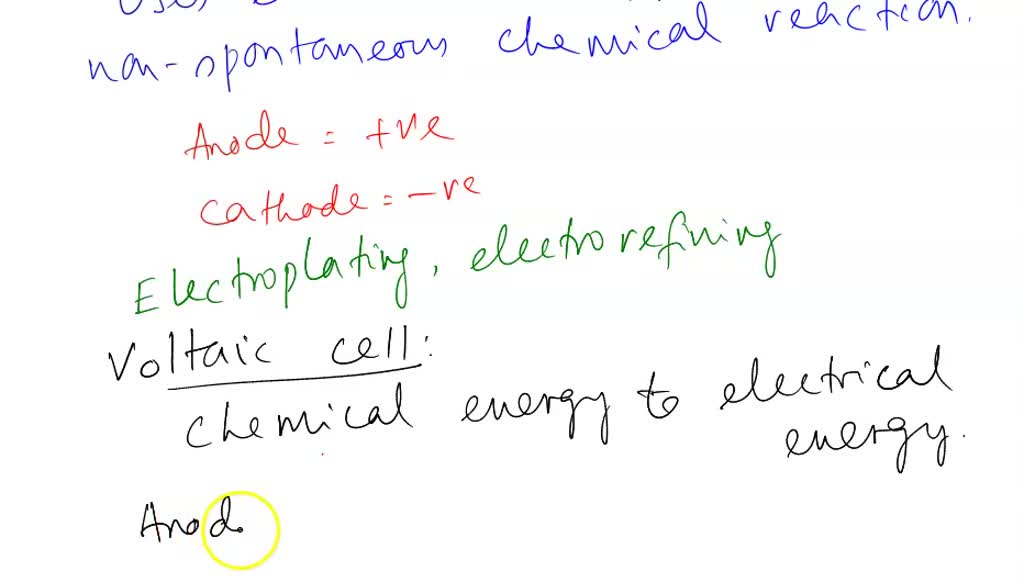 non-spontaneous chemical reaction.
Anode = +ve
Cathode = -ve
Electroplating, electrorefining
Voltaic cell:
chemical energy to electrical
energy.
Anod